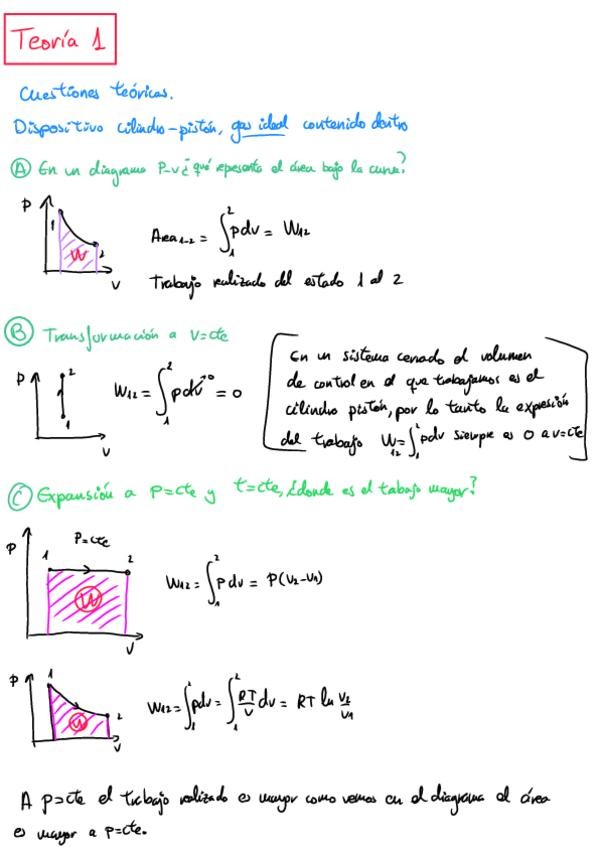 Teoría 1
Cuestiones teóricas.
Dispositivo cilindro-pistón, gas ideal contenido dentro
Ⓐ En un diagrama P-v ¿qué repesenta el área bajo la curva?
P
1
2
W
v
Area₁₋₂ = ∫₁² p dv = W₁₂
Trabajo realizado del estado 1 al 2
Ⓑ Transformación a v=cte
P
2
1
v
W₁₂ = ∫₁² p dv→0 = 0
En un sistema cerrado el volumen
de control en el que trabajamos es el
cilindro pistón, por lo tanto la expresión
del trabajo W₁₂ = ∫₁² pdv siempre es 0 a v=cte
Ⓒ Expansión a P=cte y t=cte, ¿donde es el tabajo mayor?
P=cte
P
1
2
W
v
W₁₂ = ∫₁² P dv = P(v₂-v₁)
P
1
2
W
v
W₁₂ = ∫₁² pdv = ∫₁² RT/v dv = RT ln v₂/v₁
A p=cte el trabajo realizado es mayor como vemos en el diagrama el área
es mayor a p=cte.